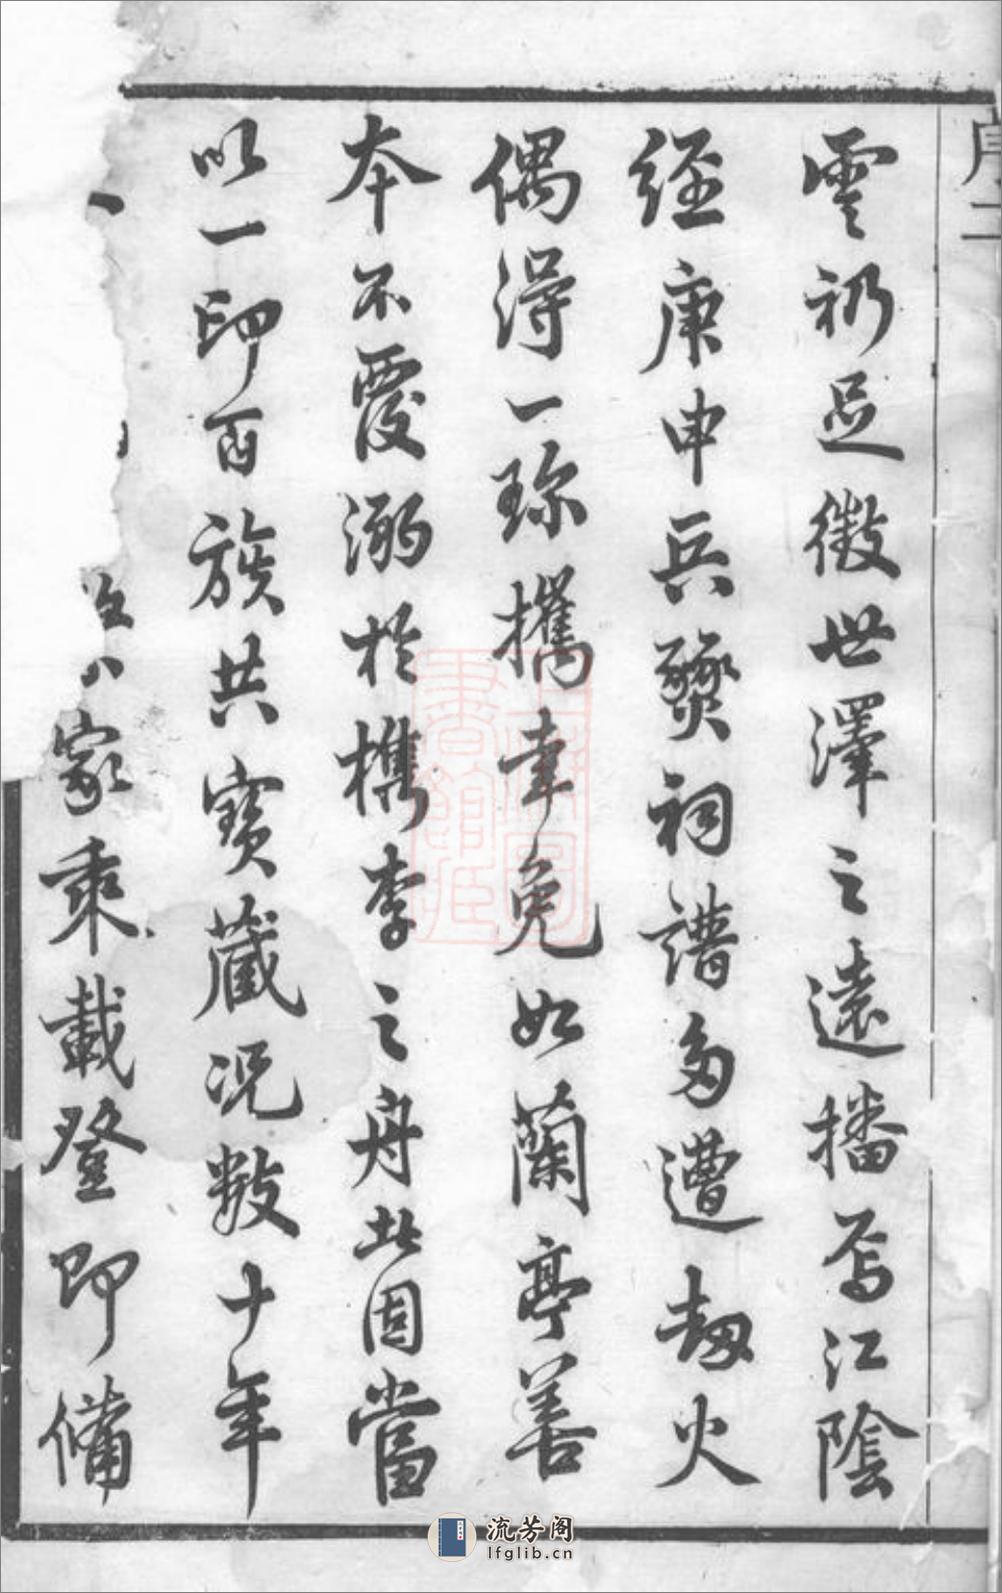 序二
雲礽足徵世澤之遠播焉江陰
經庚申兵燹祠譜多遭劫火
偶得一珍攜幸免如蘭亭善
本不覆溺於檇李之舟此固當
以一印百族共寶藏況數十年
家乘載登即備
流芳阁
lfglib.cn